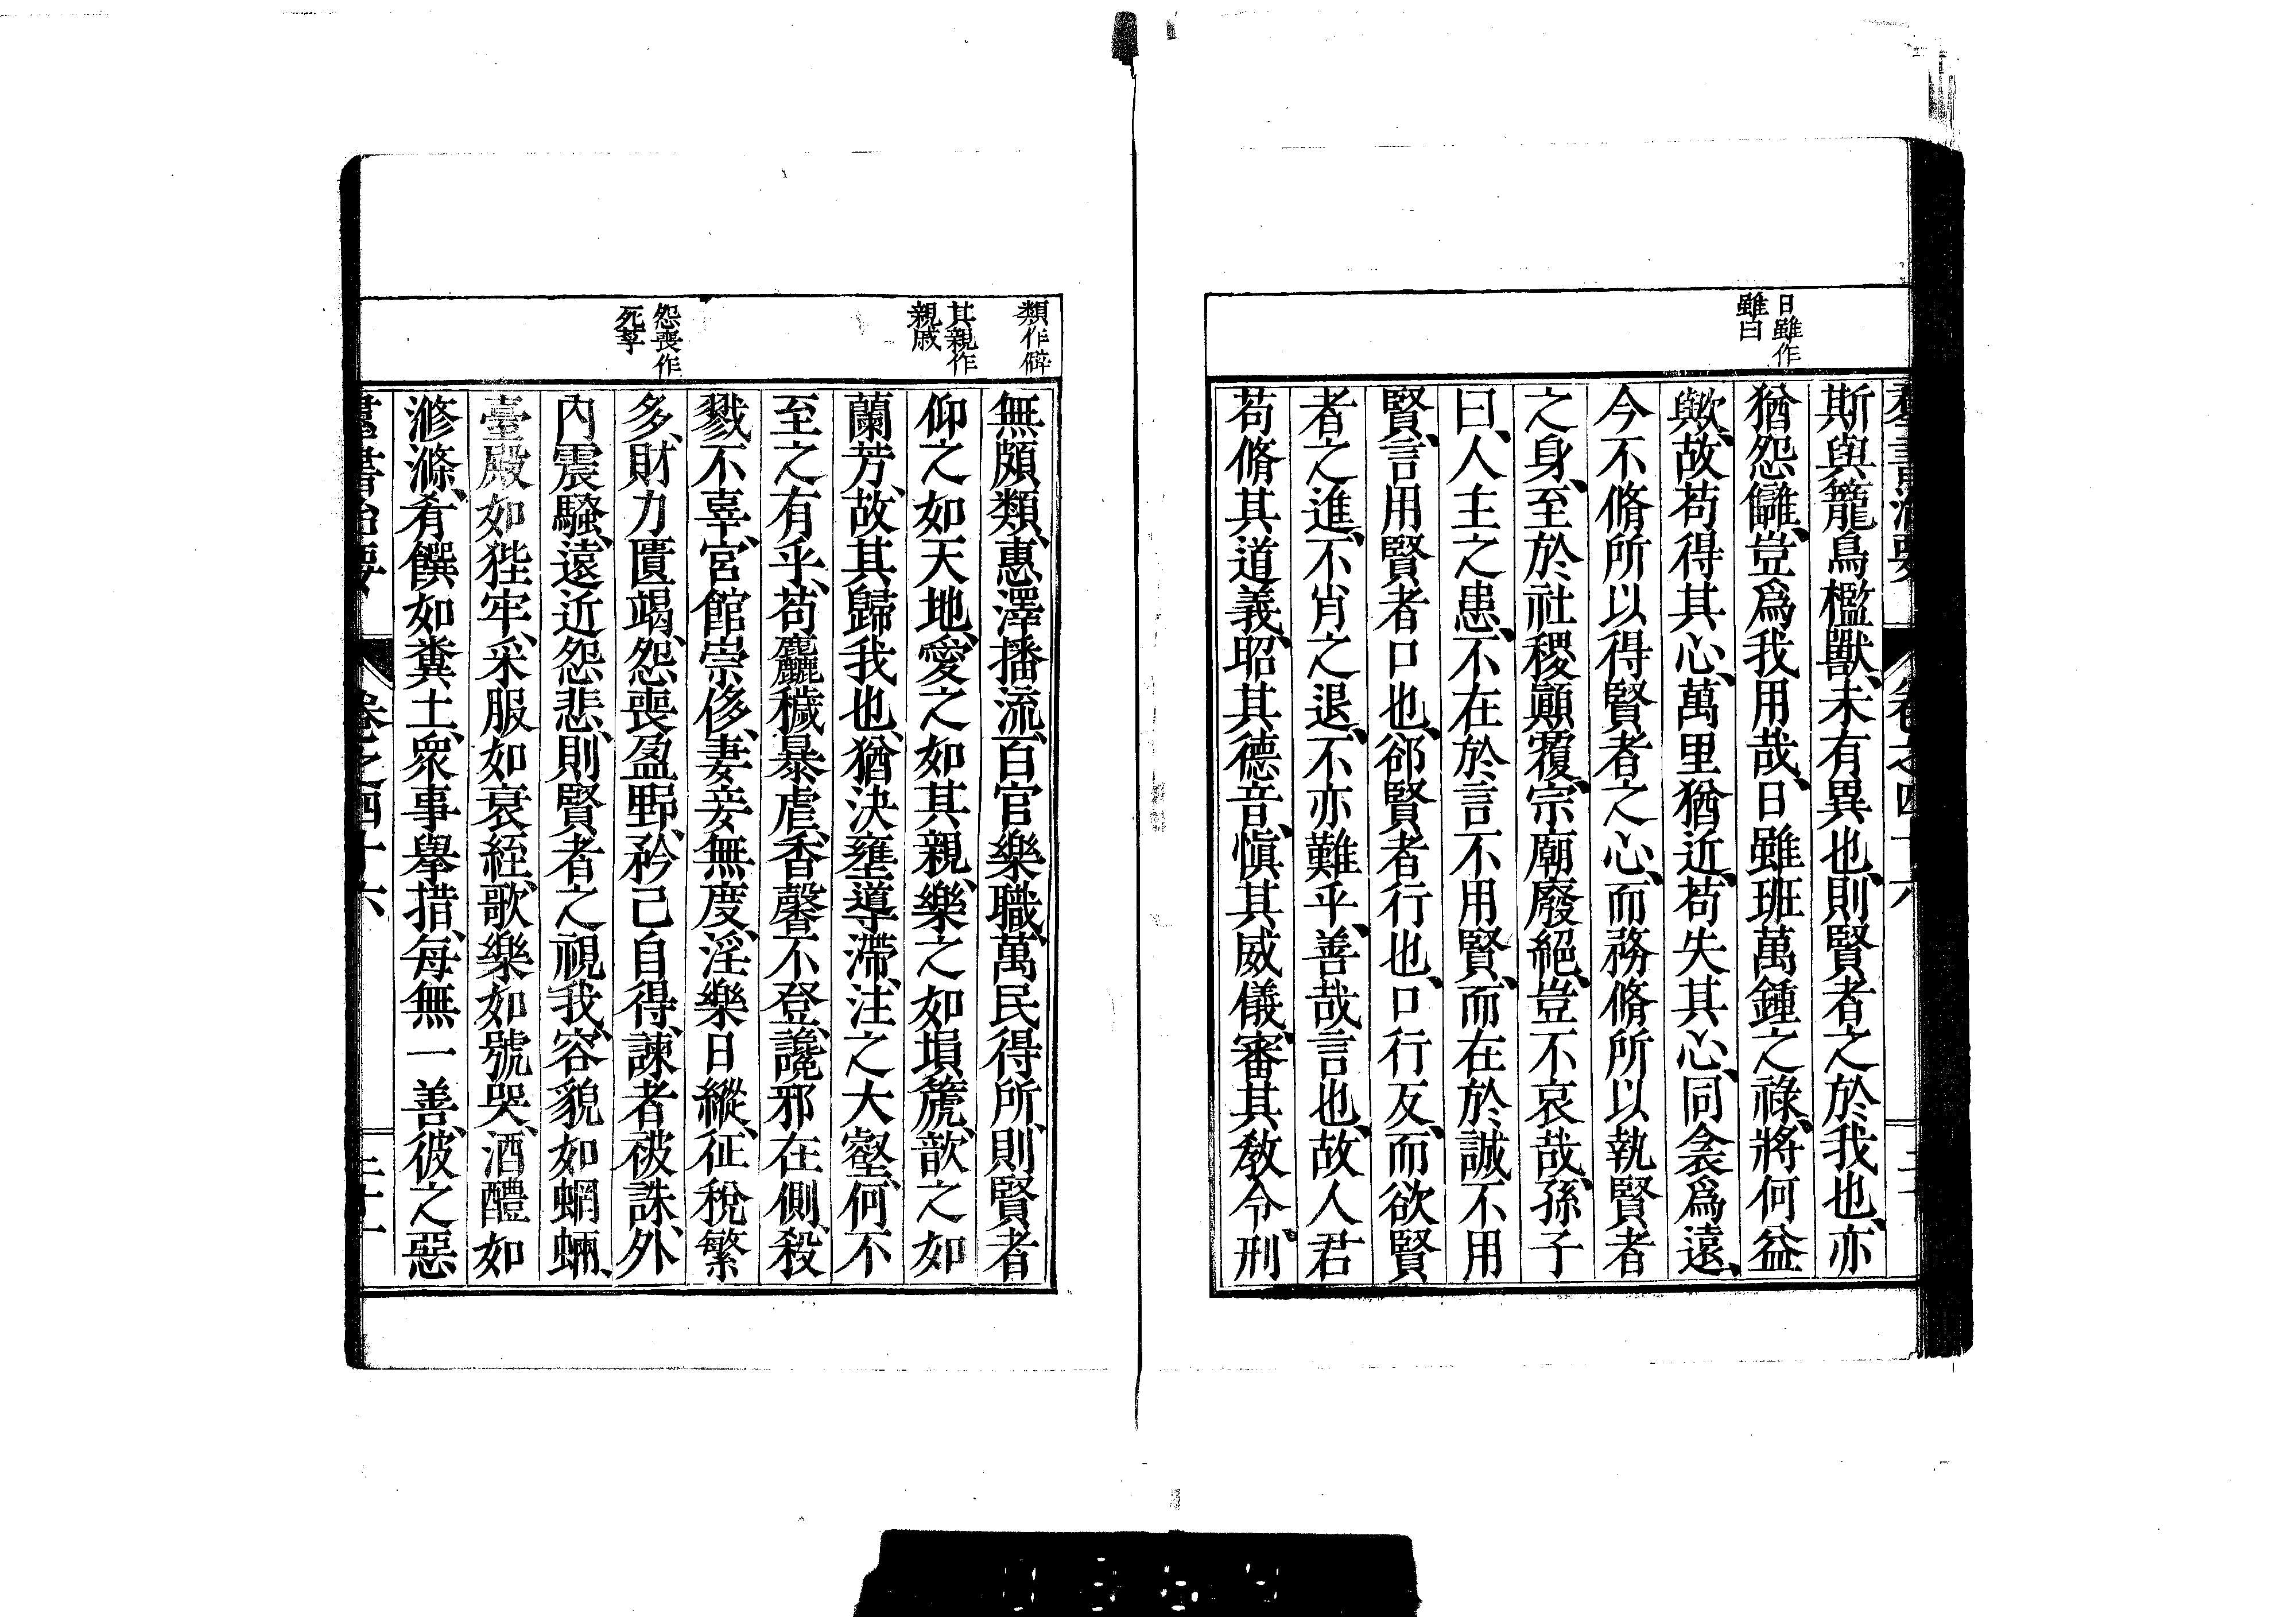 日雖作
雖曰
羣書治要 卷之四十六
斯與籠鳥檻獸、未有異也、則賢者之於我也、亦
猶怨讎、豈爲我用哉、日雖班萬鍾之祿、將何益
歟、故苟得其心、萬里猶近、苟失其心、同衾爲遠、
今不脩所以得賢者之心、而務脩所以執賢者
之身、至於社稷顚覆、宗廟廢絕、豈不哀哉、孫子
曰、人主之患、不在於言不用賢、而在於誠不用
賢、言用賢者口也、郤賢者行也、口行反、而欲賢
者之進、不肖之退、不亦難乎、善哉言也、故人君
苟脩其道義、昭其德音、愼其威儀、審其敎令、刑
類作僻
其親作
親戚
怨喪作
死莩
無頗類、惠澤播流、百官樂職、萬民得所、則賢者
仰之如天地、愛之如其親、樂之如塤篪、歆之如
蘭芳、故其歸我也、猶決壅導滯、注之大壑、何不
至之有乎、苟麤穢暴虐、香馨不登、讒邪在側、殺
戮不辜、宮館崇侈、妻妾無度、淫樂日縱、征稅繁
多、財力匱竭、怨喪盈野、矜己自得、諫者被誅、外
內震騷、遠近怨悲、則賢者之視我、容貌如蝄蜽、
臺殿如狴牢、采服如衰絰、歌樂如號哭、酒醴如
滫滌、肴饌如糞土、衆事擧措、每無一善、彼之惡
羣書治要 卷之四十六